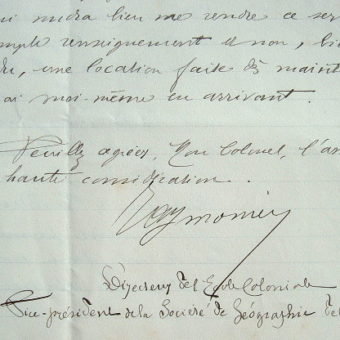 voudra bien me rendre ce ser
simple renseignement et non, bie
du, une location faite dès maint
rai moi-même en arrivant.
Veuillez agréer, Mon Colonel, l'as
haute considération.
Directeur de l'Ecole Coloniale
Vice-président de la Société de Géographie de